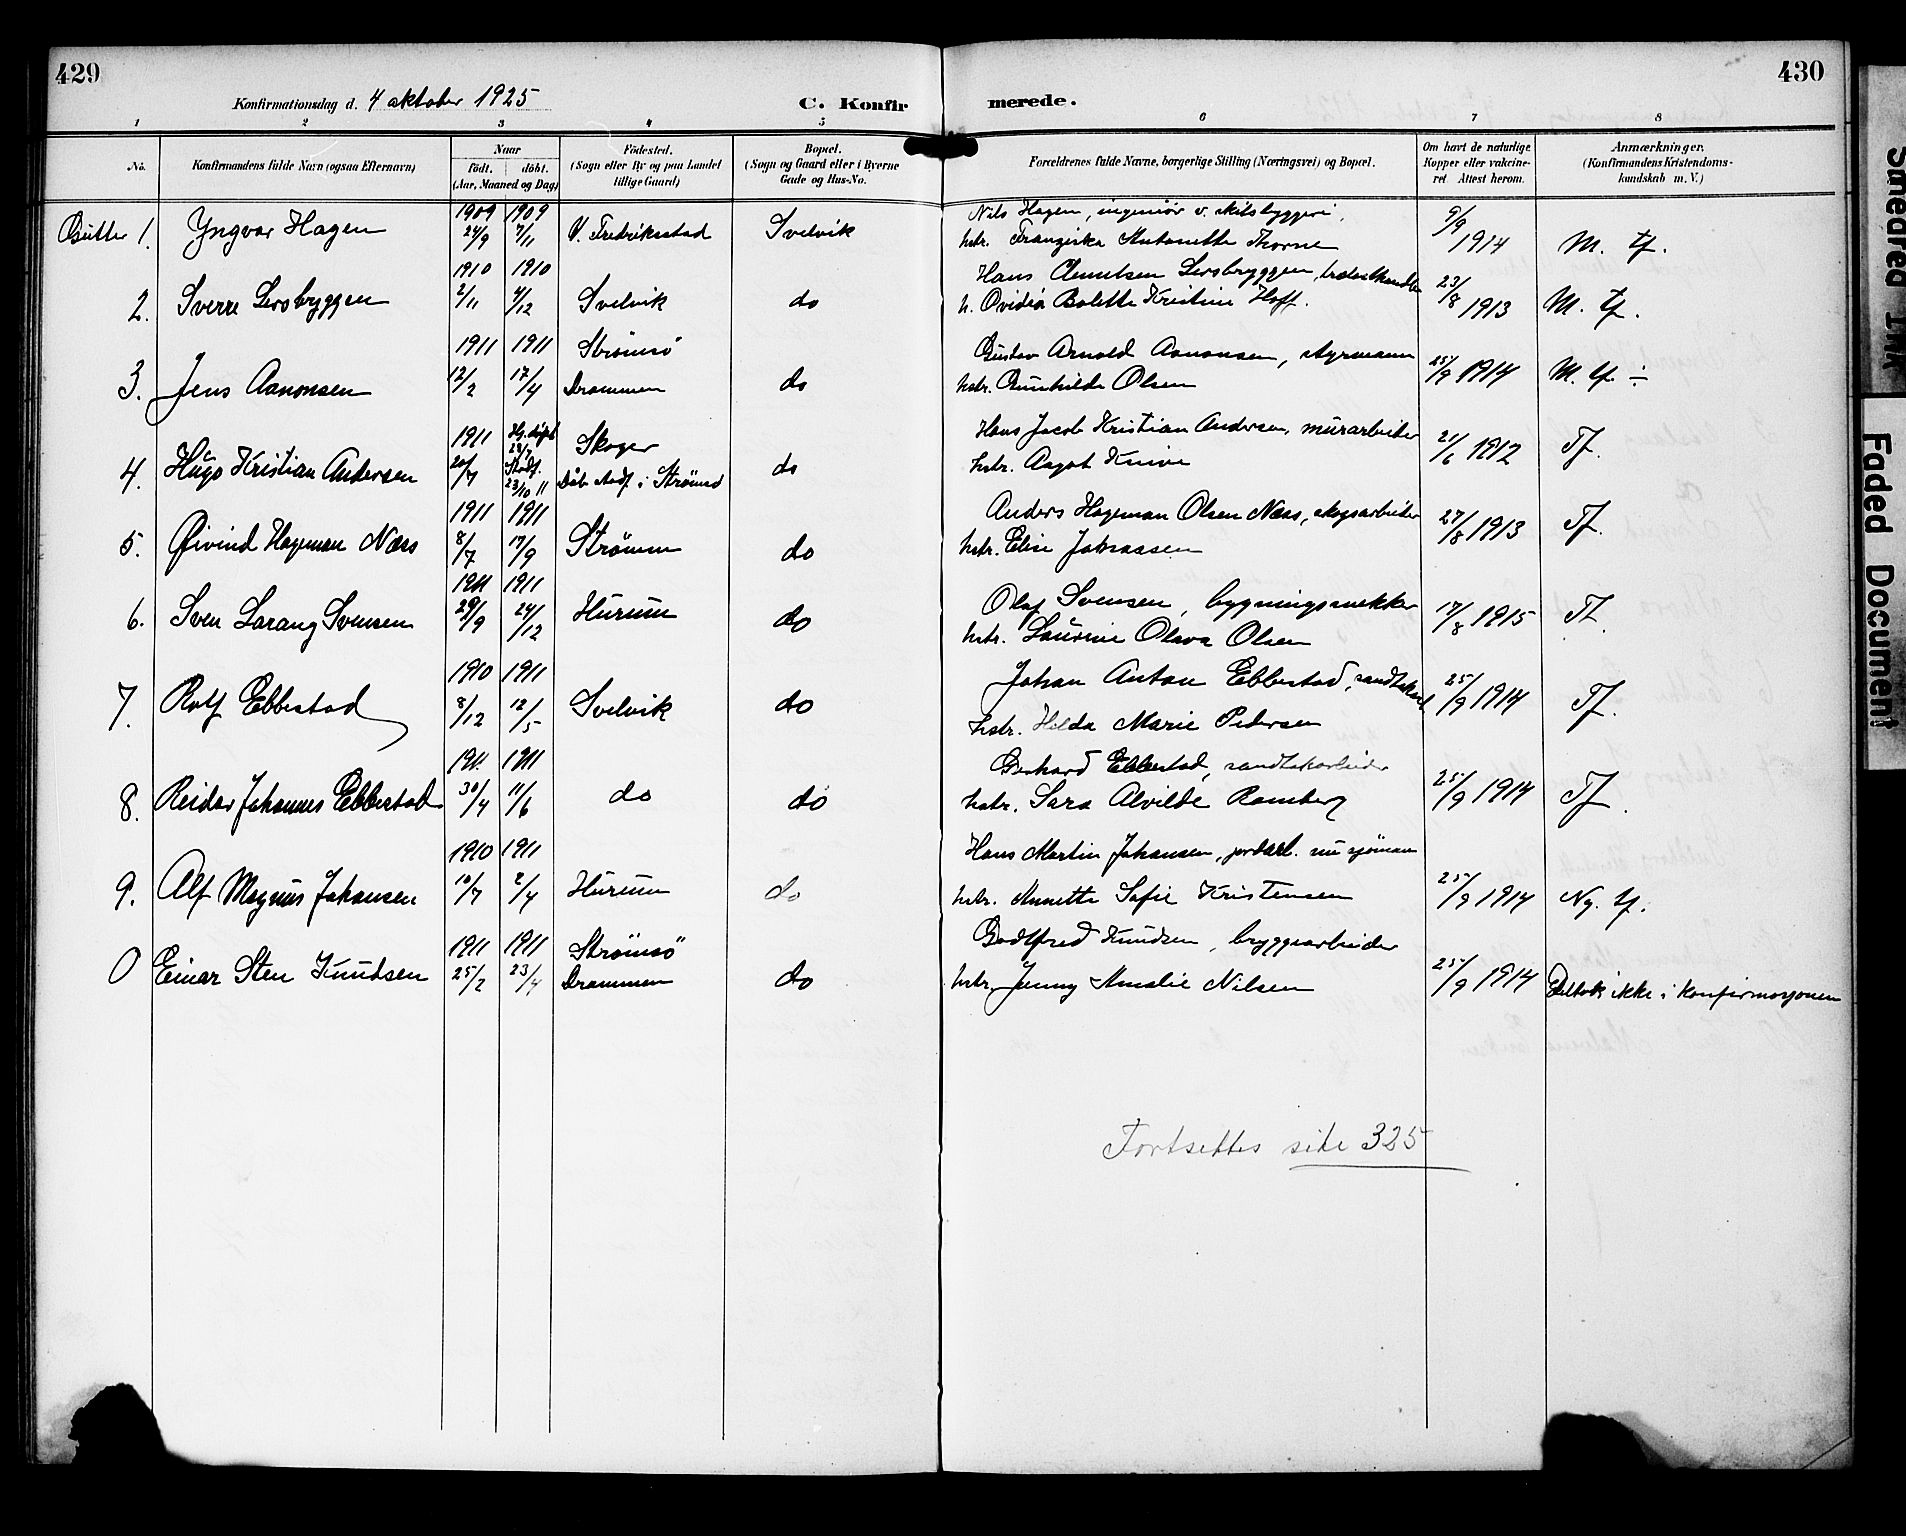 429
430
Konfirmationsdag d. 4 oktober 1925
C. Konfirmerede.
1 2 3 4 5 6 7 8
No.
Konfirmandens fulde Navn (ogsaa Efternavn)
Naar
født. døbt.
(Aar, Maaned og Dag)
Fødested.
(Sogn eller By og paa Landet
tillige Gaard)
Bopæl.
(Sogn og Gaard eller i Byerne
Gade og Hus-No.
Forældrenes fulde Navne, borgerlige Stilling (Næringsvei) og Bopæl.
Om havt de naturlige
Kopper eller vakcine-
ret Attest herom.
Anmærkninger.
(Konfirmandens Kristendoms-
kundskab m. V.)
Gutter 1. Yngvar Hagen 1909 24/9 1909 7/11 V. Fredriksstad Svelvik
Nils Hagen, ingeniør v. skibsbyggeri,
hstr. Franziska Antonette Thorne 9/9 1914 M. tf.
2. Sverre Lersbryggen 1910 2/11 1910 4/12 Svelvik do
Hans Lersbryggen,
h. Ovidia Bolette Kristine Hoff. 23/8 1913 M. tf.
3. Jens Aanonsen 1911 12/2 1911 17/4 Strømsø Drammen do
Gustav Arnold Aanonsen, styrmann
hstr. Gunhilda Olsen 25/9 1914 M. tf. ÷
4. Hugo Kristian Andersen 1911 20/7 Hj. døpt 28/7 Stadf. 23/10 11 Skoger Dåb stadf. i Strømsø do
Hans Jacob Kristian Andersen, murarbeider
hstr. Aagot Knive 21/6 1912 Tf.
5. Øivind Hageman Næss 1911 8/7 1911 17/9 Strømm do
Anders Hageman Olsen Næss, skogsarbeider
hstr. Elise Johnassen 27/8 1913 Tf.
6. Sven Svensen 1911 29/9 1911 24/12 Hurum do
Olaf Svensen, bygningssnekker
hstr. Laurine Olava Olsen 17/8 1915 Tf.
7. Rolf Ebbestad 1910 8/12 1911 12/5 Svelvik do
Johan Anton Ebbestad,
hstr. Helda Marie Pedersen 25/9 1914 Tf.
8. Reidar Johannes Ebbestad 1911 30/4 1911 11/6 do do
Gerhard Ebbestad, sandtakarbeider
hstr. Sara Alvilde Ramberg 25/9 1914 Tf.
9. Alf Magnus Johansen 1910 10/7 1911 2/4 Hurum do
Hans Martin Johansen, jordarb. nu sjöman
hstr. Annette Sofie Kristensen 25/9 1914 Ng. tf.
0 Einar Sten Knudsen 1911 25/2 1911 23/4 Strømsö Drammen do
Godtfred Knudsen, bryggearbeider
hstr. Jenny Amalie Nilsen 25/9 1914 Deltok ikke i konfirmasjonen
Fortsettes side 325
Smeared Ink
Faded Document